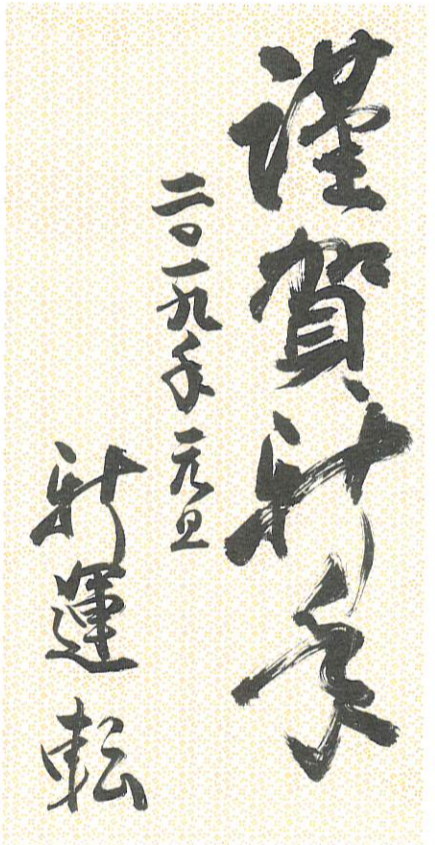 謹賀新年
二〇一九年 元旦
新運転